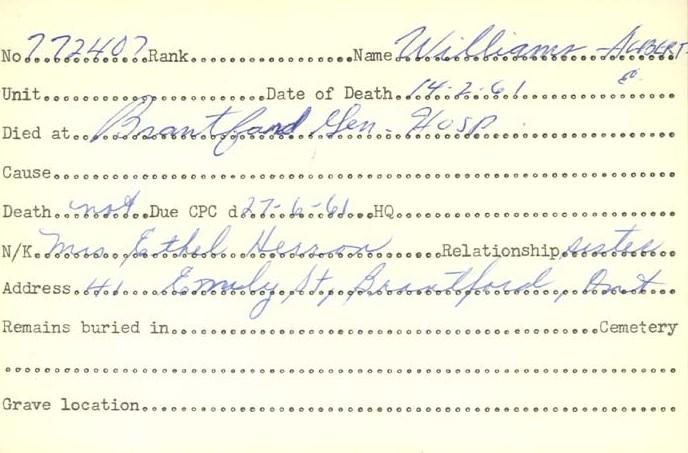 No 772407 Rank Name Williams - ALBERT-
E.
Unit Date of Death 14-2-61
Died at Brantford Gen. Hosp.
Cause
Death not Due CPC d 27-6-61 HQ
N/K Mrs Ethel Hesson Relationship sister
Address 41 Emily St, Brantford, Ont
Remains buried in Cemetery
Grave location